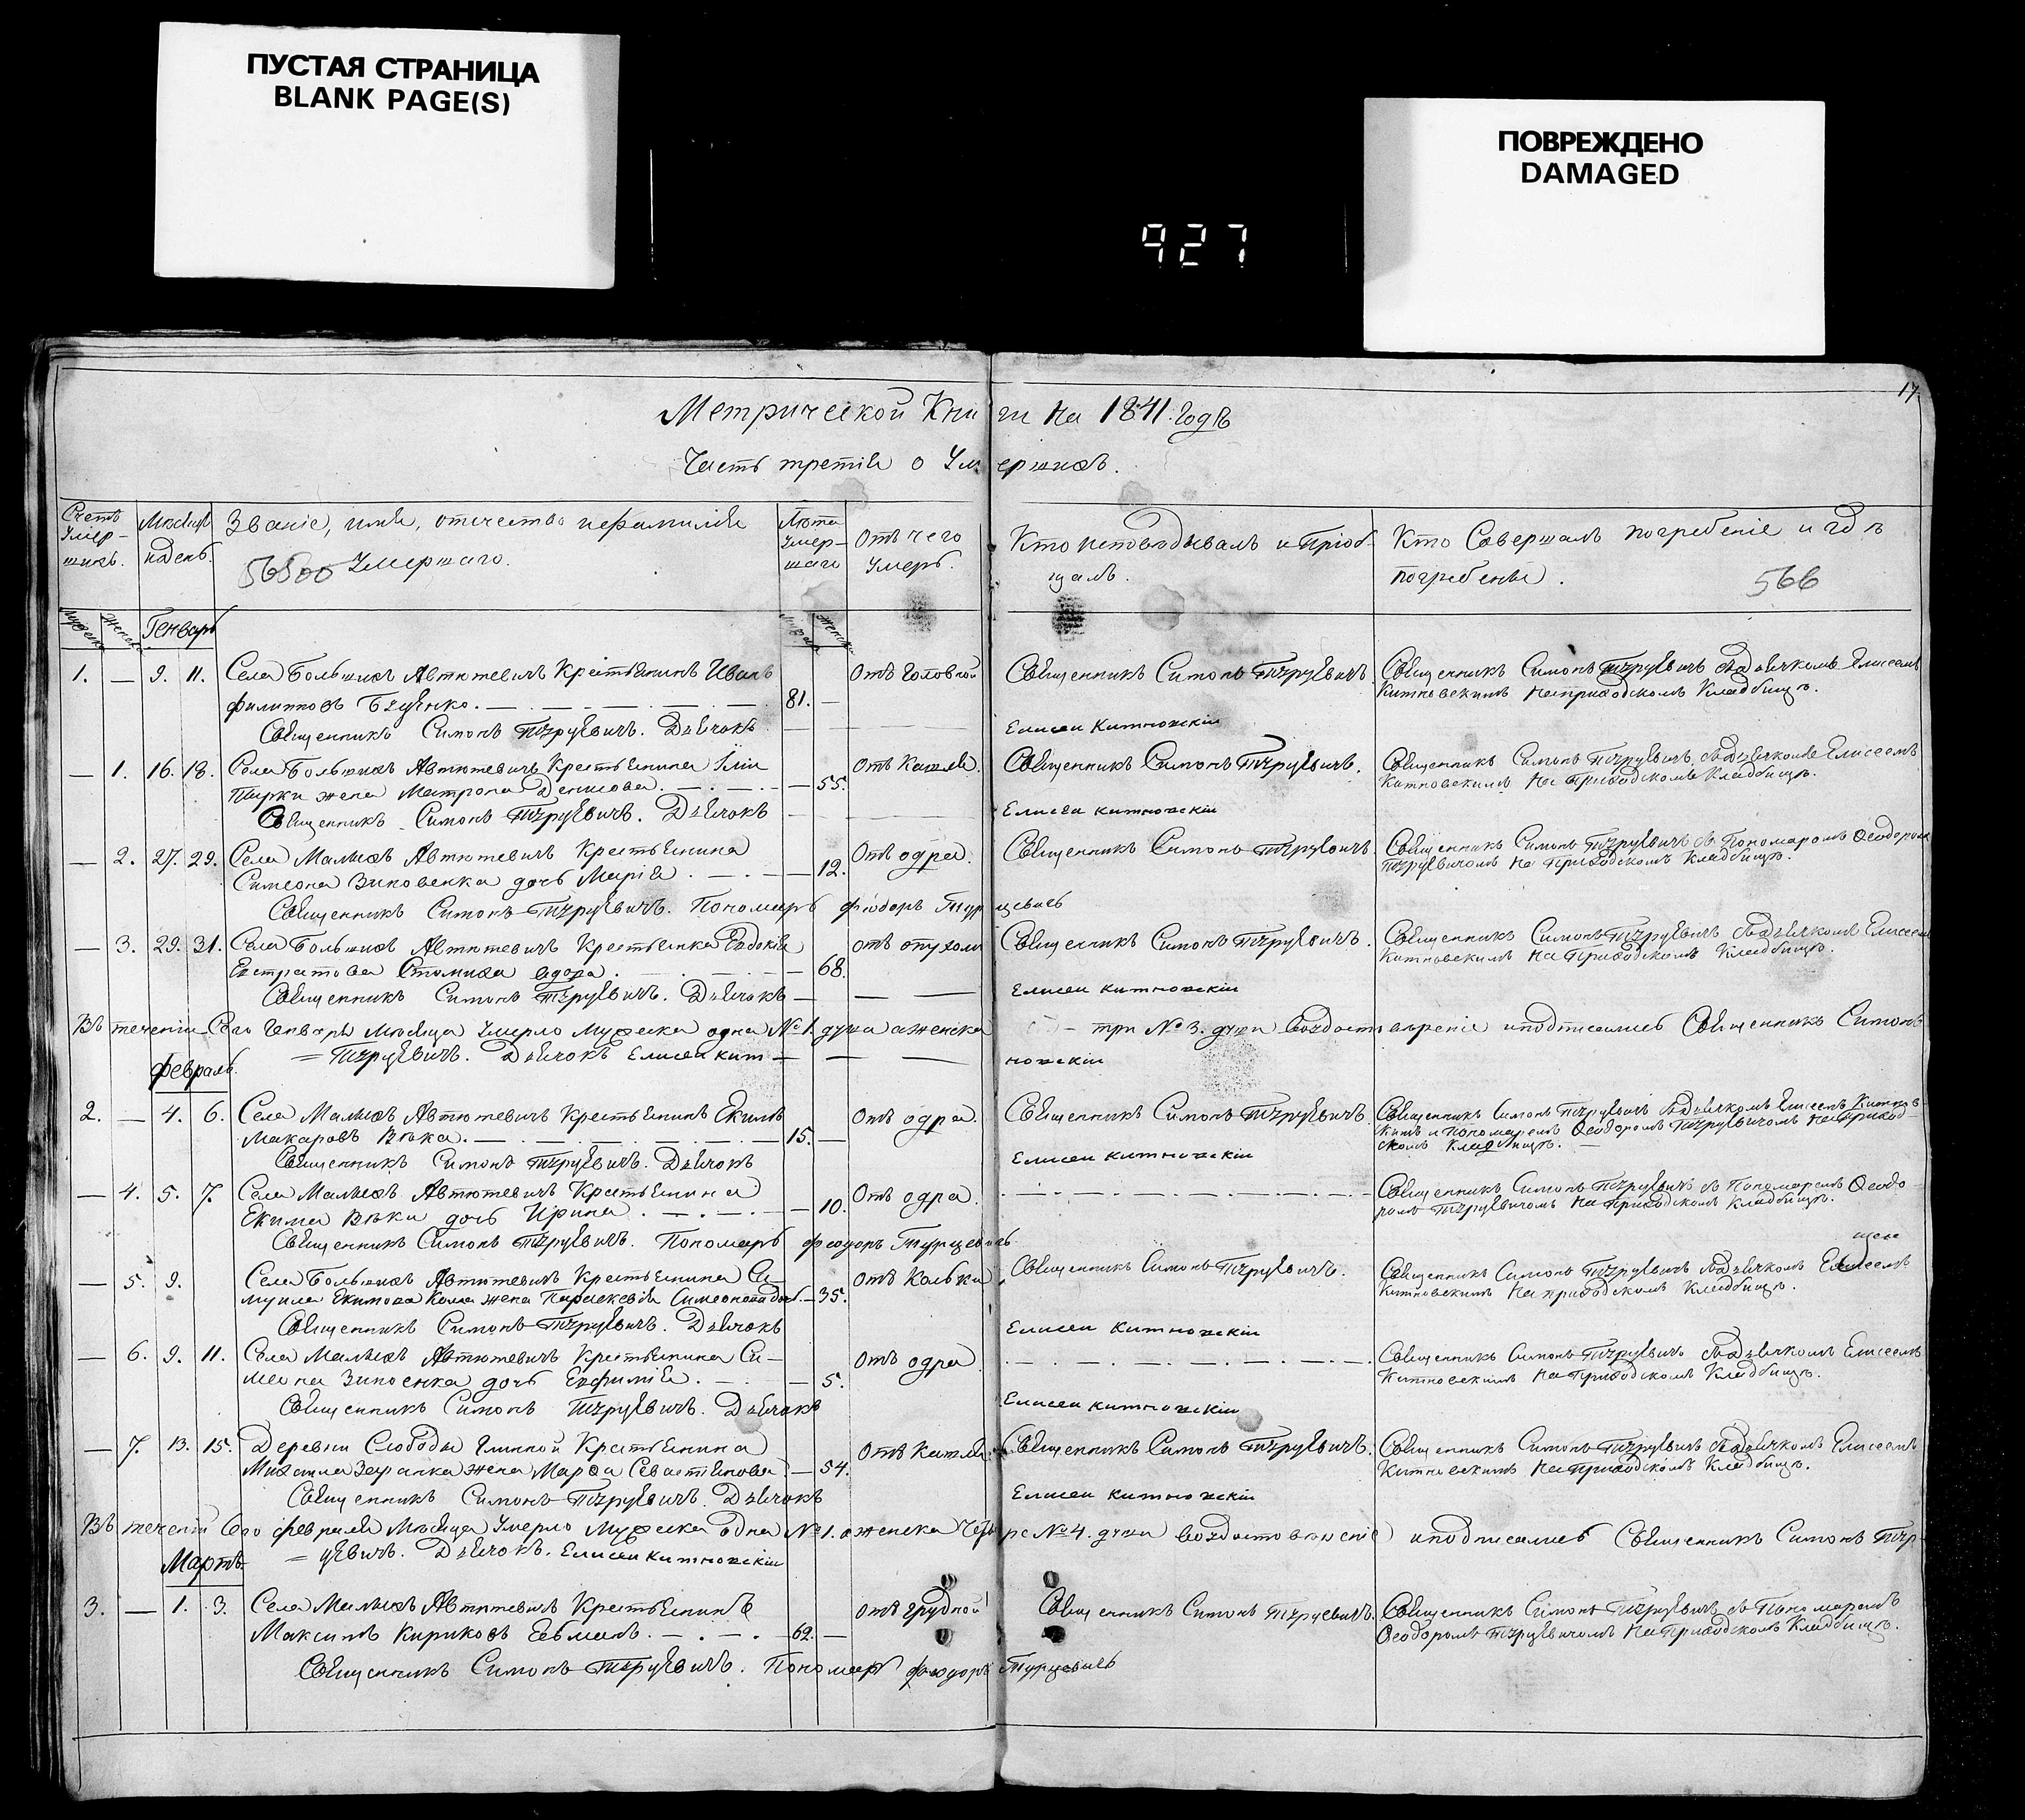 ПУСТАЯ СТРАНИЦА
BLANK PAGE(S)
ПОВРЕЖДЕНО
DAMAGED
927
17
Метрической Книги на 1841. Годъ
Часть третія о Умершихъ.
Счетъ Умер-шихъ.
Мѣсяцъ и день.
Званіе, имя, отчество и фамилія Умершаго.
56500
Лѣта Умер-шаго
Отъ чего Умеръ.
Кто исповѣдывалъ и пріоб-щалъ.
Кто Совершалъ погребеніе и гдѣ погребены.
566
Генварь
1. — 9. 11. Села Большихъ Автютевичъ Крестьянинъ Иванъ
Филиповъ — 81. — Отъ Головной
Священникъ Симонъ Турцевичъ.
Священникъ Симонъ Турцевичъ съ дьячкомъ Елисеемъ
Китновскимъ На приходскомъ Кладбищѣ.
Священникъ Симонъ Турцевичъ. Дьячокъ Елисей Китновскій
— 1. 16. 18. Села Большихъ Автютевичъ Крестьянина
жена Матрона Денисова. — 55. Отъ Кашля.
Священникъ Симонъ Турцевичъ.
Священникъ Симонъ Турцевичъ съ дьячкомъ Елисеемъ
Китновскимъ На приходскомъ Кладбищѣ.
Священникъ Симонъ Турцевичъ. Дьячокъ Елисей Китновскій
— 2. 27. 29. Села Малыхъ Автютевичъ Крестьянина
Симеона Зиновенка дочь Марія. — 12. Отъ одра.
Священникъ Симонъ Турцевичъ
Священникъ Симонъ Турцевичъ съ Пономаромъ Ѳеодоромъ
Турцевичомъ На Приходскомъ Кладбищѣ.
Священникъ Симонъ Турцевичъ. Пономарь Фіодоръ Турцевичъ
— 3. 29. 31. Села Большихъ Автютевичъ Крестьянка Евдокія
Евстратова вдова. — 68. отъ опухоли
Священникъ Симонъ Турцевичъ.
Священникъ Симонъ Турцевичъ съ дьячкомъ Елисеемъ
Китновскимъ На Приходскомъ Кладбищѣ.
Священникъ Симонъ Турцевичъ. Дьячокъ — Елисей Китновскій
Въ теченіи Сего Генваря Мѣсяца Умерло Мужеска одна №1. душа а женска — три №3. души во удостовѣреніе и подписались Священникъ Симонъ
= Турцевичъ. Дьячокъ Елисей Китновскій
Февраль.
2. — 4. 6. Села Малыхъ Автютевичъ Крестьянинъ Екимъ
Макаровъ Вѣка. — 15. — Отъ одра.
Священникъ Симонъ Турцевичъ
Священникъ Симонъ Турцевичъ съ дьячкомъ Елисеемъ Китнов-
скимъ и Пономаремъ Ѳеодоромъ Турцевичомъ На Приход-
скомъ Кладбищѣ. —
Священникъ Симонъ Турцевичъ. Дьячокъ Елисей Китновскій
— 4. 5. 7. Села Малыхъ Автютевичъ Крестьянина
Екима Вѣки дочь Ирина. — 10. Отъ одра.
Священникъ Симонъ Турцевичъ съ Пономаремъ Ѳеодо-
ромъ Турцевичомъ На приходскомъ Кладбищѣ.
Священникъ Симонъ Турцевичъ. Пономарь Фіодоръ Турцевичъ
— 5. 9. Села Большихъ Автютевичъ Крестьянина Са-
муила Екимова жена Параскевія Симеонова — 35. Отъ Кольки
Священникъ Симонъ Турцевичъ.
Священникъ Симонъ Турцевичъ съ дьячкомъ Елисеемъ
Китновскимъ На приходскомъ Кладбищѣ.
Священникъ Симонъ Турцевичъ. Дьячокъ Елисей Китновскій
— 6. 9. 11. Села Малыхъ Автютевичъ Крестьянина Си-
меона Зиновенка дочь Евфимія. — 5. Отъ одра
Священникъ Симонъ Турцевичъ съ дьячкомъ Елисеемъ
Китновскимъ На Приходскомъ Кладбищѣ.
Священникъ Симонъ Турцевичъ. Дьячокъ Елисей Китновскій
— 7. 13. 15. Деревни Слободы Глинной Крестьянина
Михаила жена Марѳа Севастіянова — 54. Отъ Кашля.
Священникъ Симонъ Турцевичъ.
Священникъ Симонъ Турцевичъ съ дьячкомъ Елисеемъ
Китновскимъ На приходскомъ Кладбищѣ.
Священникъ Симонъ Турцевичъ. Дьячокъ Елисей Китновскій
Въ теченіи Сего Февраля Мѣсяца Умерло Мужеска одна №1. а женска Четыре №4. души во удостовѣреніе и подписались Священникъ Симонъ Тур-
= цевичъ. Дьячокъ. Елисей Китновскій
Мартъ
3. — 1. 3. Села Малыхъ Автютевичъ Крестьянинъ
Максимъ Кириковъ — 62. — Отъ Грудной
Священникъ Симонъ Турцевичъ.
Священникъ Симонъ Турцевичъ съ Пономаремъ
Ѳеодоромъ Турцевичомъ На Приходскомъ Кладбищѣ.
Священникъ Симонъ Турцевичъ. Пономарь Фіодоръ Турцевичъ